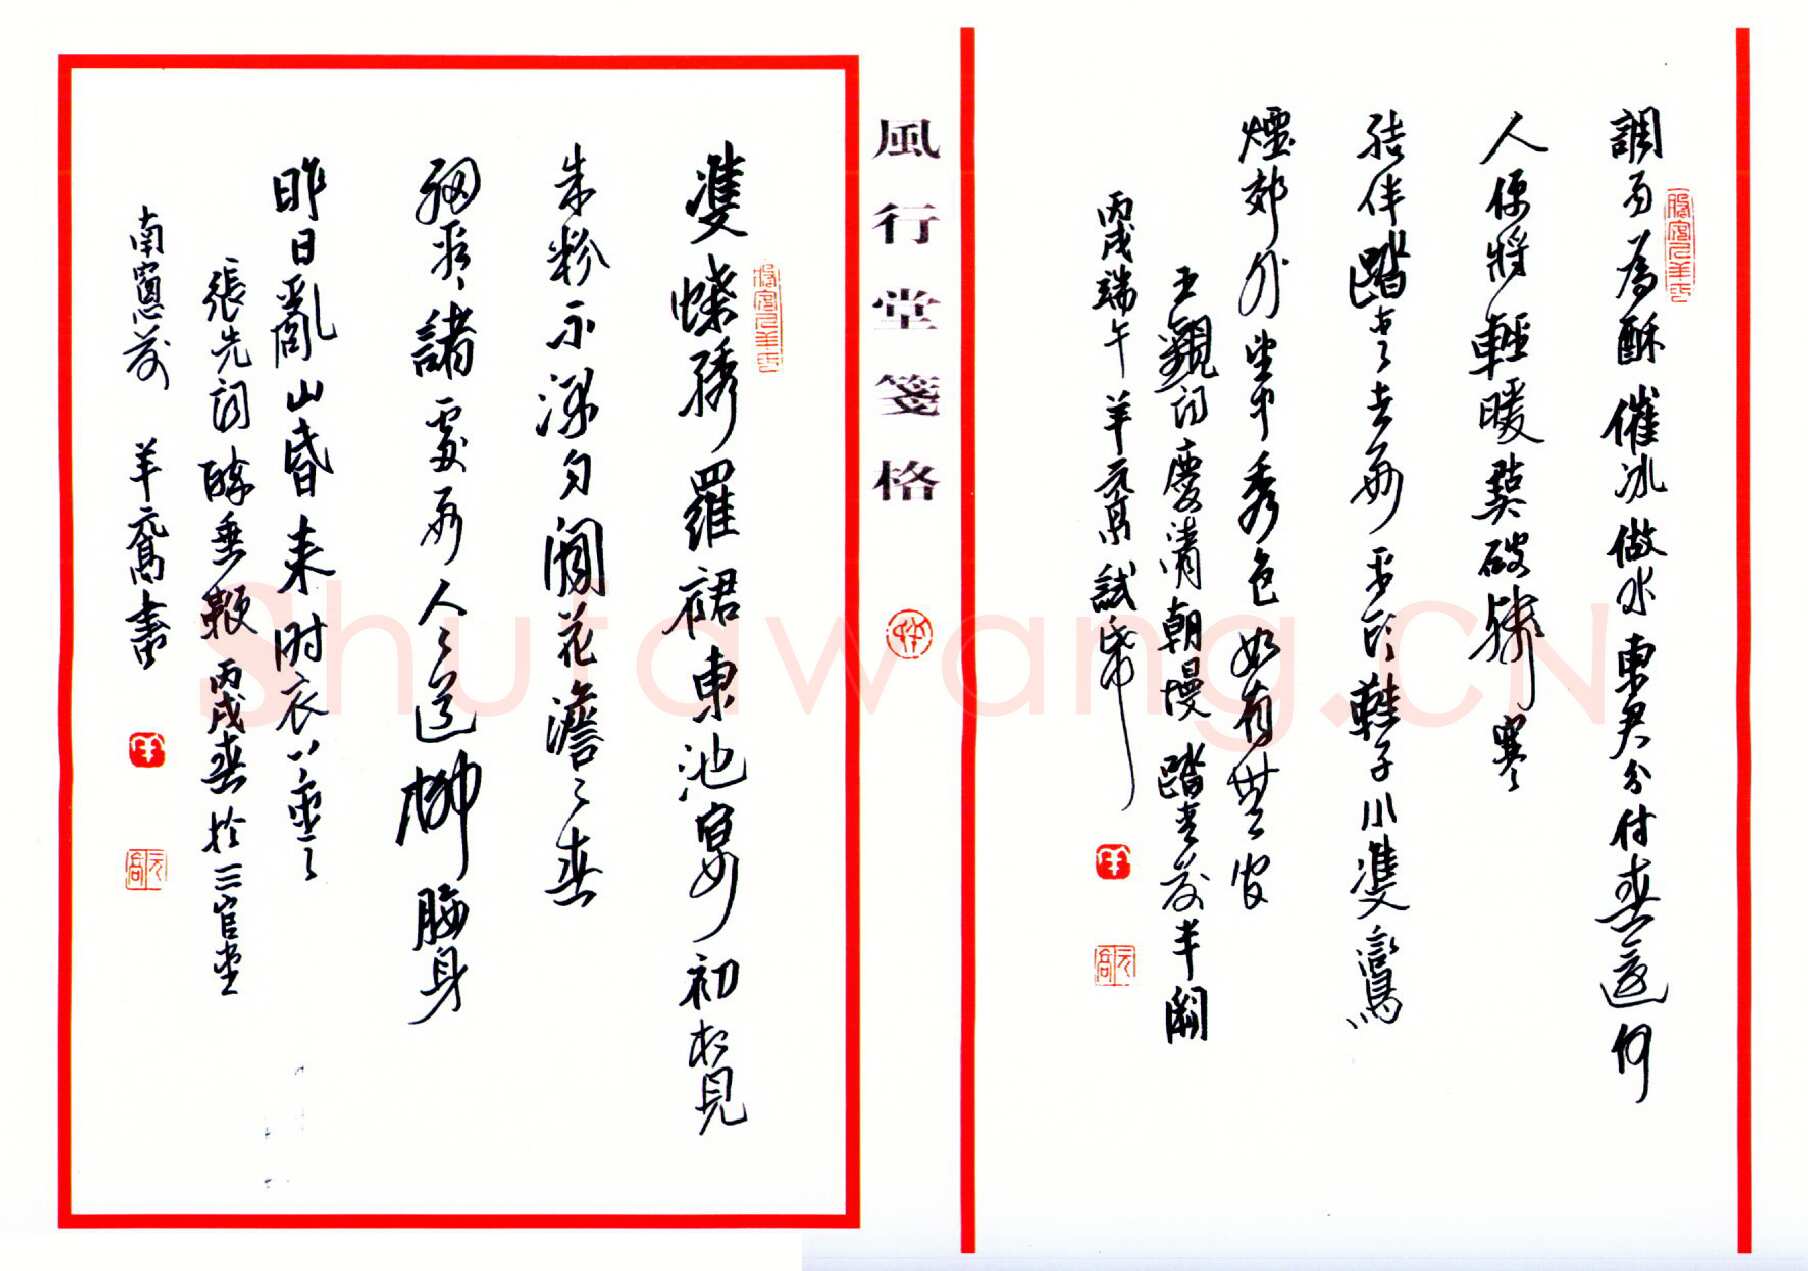 調雨為酥催冰做水東君分付春還何
人便將輕暖點破殘寒
結伴踏青去好平頭鞋子小雙鸞
煙郊外望中秀色如有無間
王觀詞慶清朝慢踏青前半闋
丙戌端午 羊元 試帋
風行堂箋格
雙蝶繡羅裙東池宴初相見
朱粉不深勻閒花澹〻春
細看諸處好人〻道柳腰身
昨日亂山昏來時衣上雲
張先詞醉垂鞭 丙戌春於三官堂
南窗前 羊元 書
Shufawang.CN